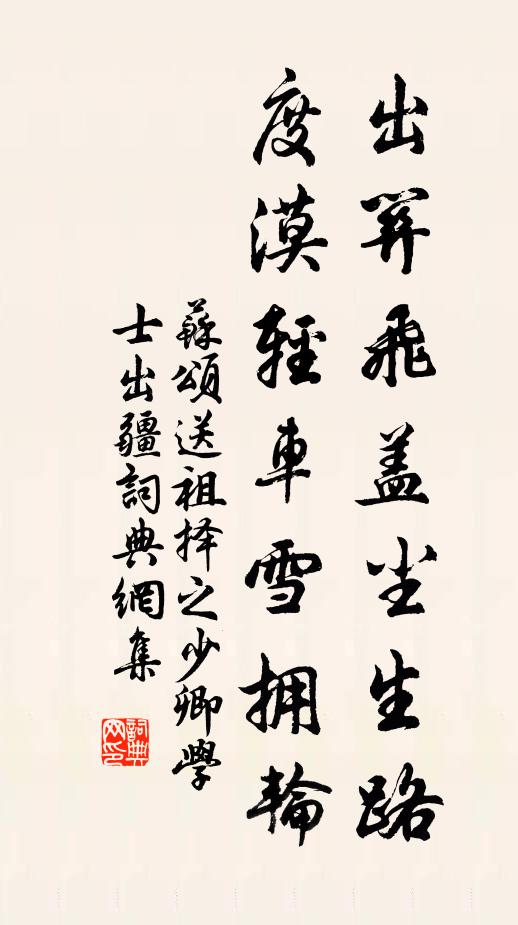 出羿飛盖尘生路
度漠輕車雪拥輪
蘇頌送祖择之少卿學
士出疆詞典網集
詞典
网印